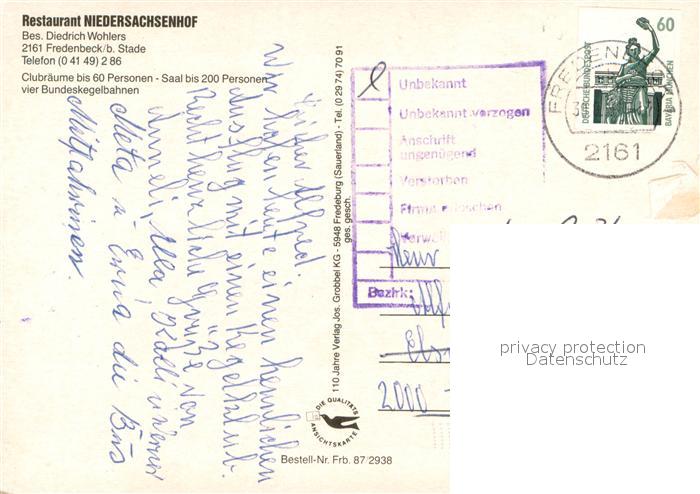 Restaurant NIEDERSACHSENHOF
Bes. Diedrich Wohlers
2161 Fredenbeck/b. Stade
Telefon (0 41 49) 2 86
Clubräume bis 60 Personen - Saal bis 200 Personen
vier Bundeskegelbahnen
Lieber Alfred.
Wir haben heute einen herrlichen
Ausflug mit einen Kegelklub.
Recht herzliche Grüße von
Anneli, Ulla, Käthi u. Werner
Meta u. Erna die Bus
Mitfahrinnen.
110 Jahre Verlag Jos. Grobbel KG - 5948 Fredeburg (Sauerland) - Tel. (0 29 74) 70 91
ges. gesch.
DIE QUALITÄTS
ANSICHTSKARTE
Bestell-Nr. Frb. 87/2938
Unbekannt
Unbekannt verzogen
Anschrift
ungenügend
Verstorben
Firma erloschen
Bezirk:
60
DEUTSCHE BUNDESPOST
BAVARIA MÜNCHEN
2161
Herr
2000
privacy protection
Datenschutz